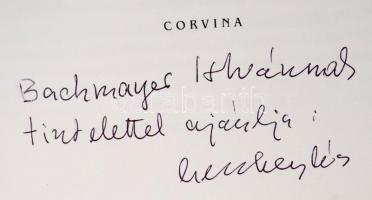 CORVINA
Bachmayer Istvánnak
tisztelettel ajánlja :